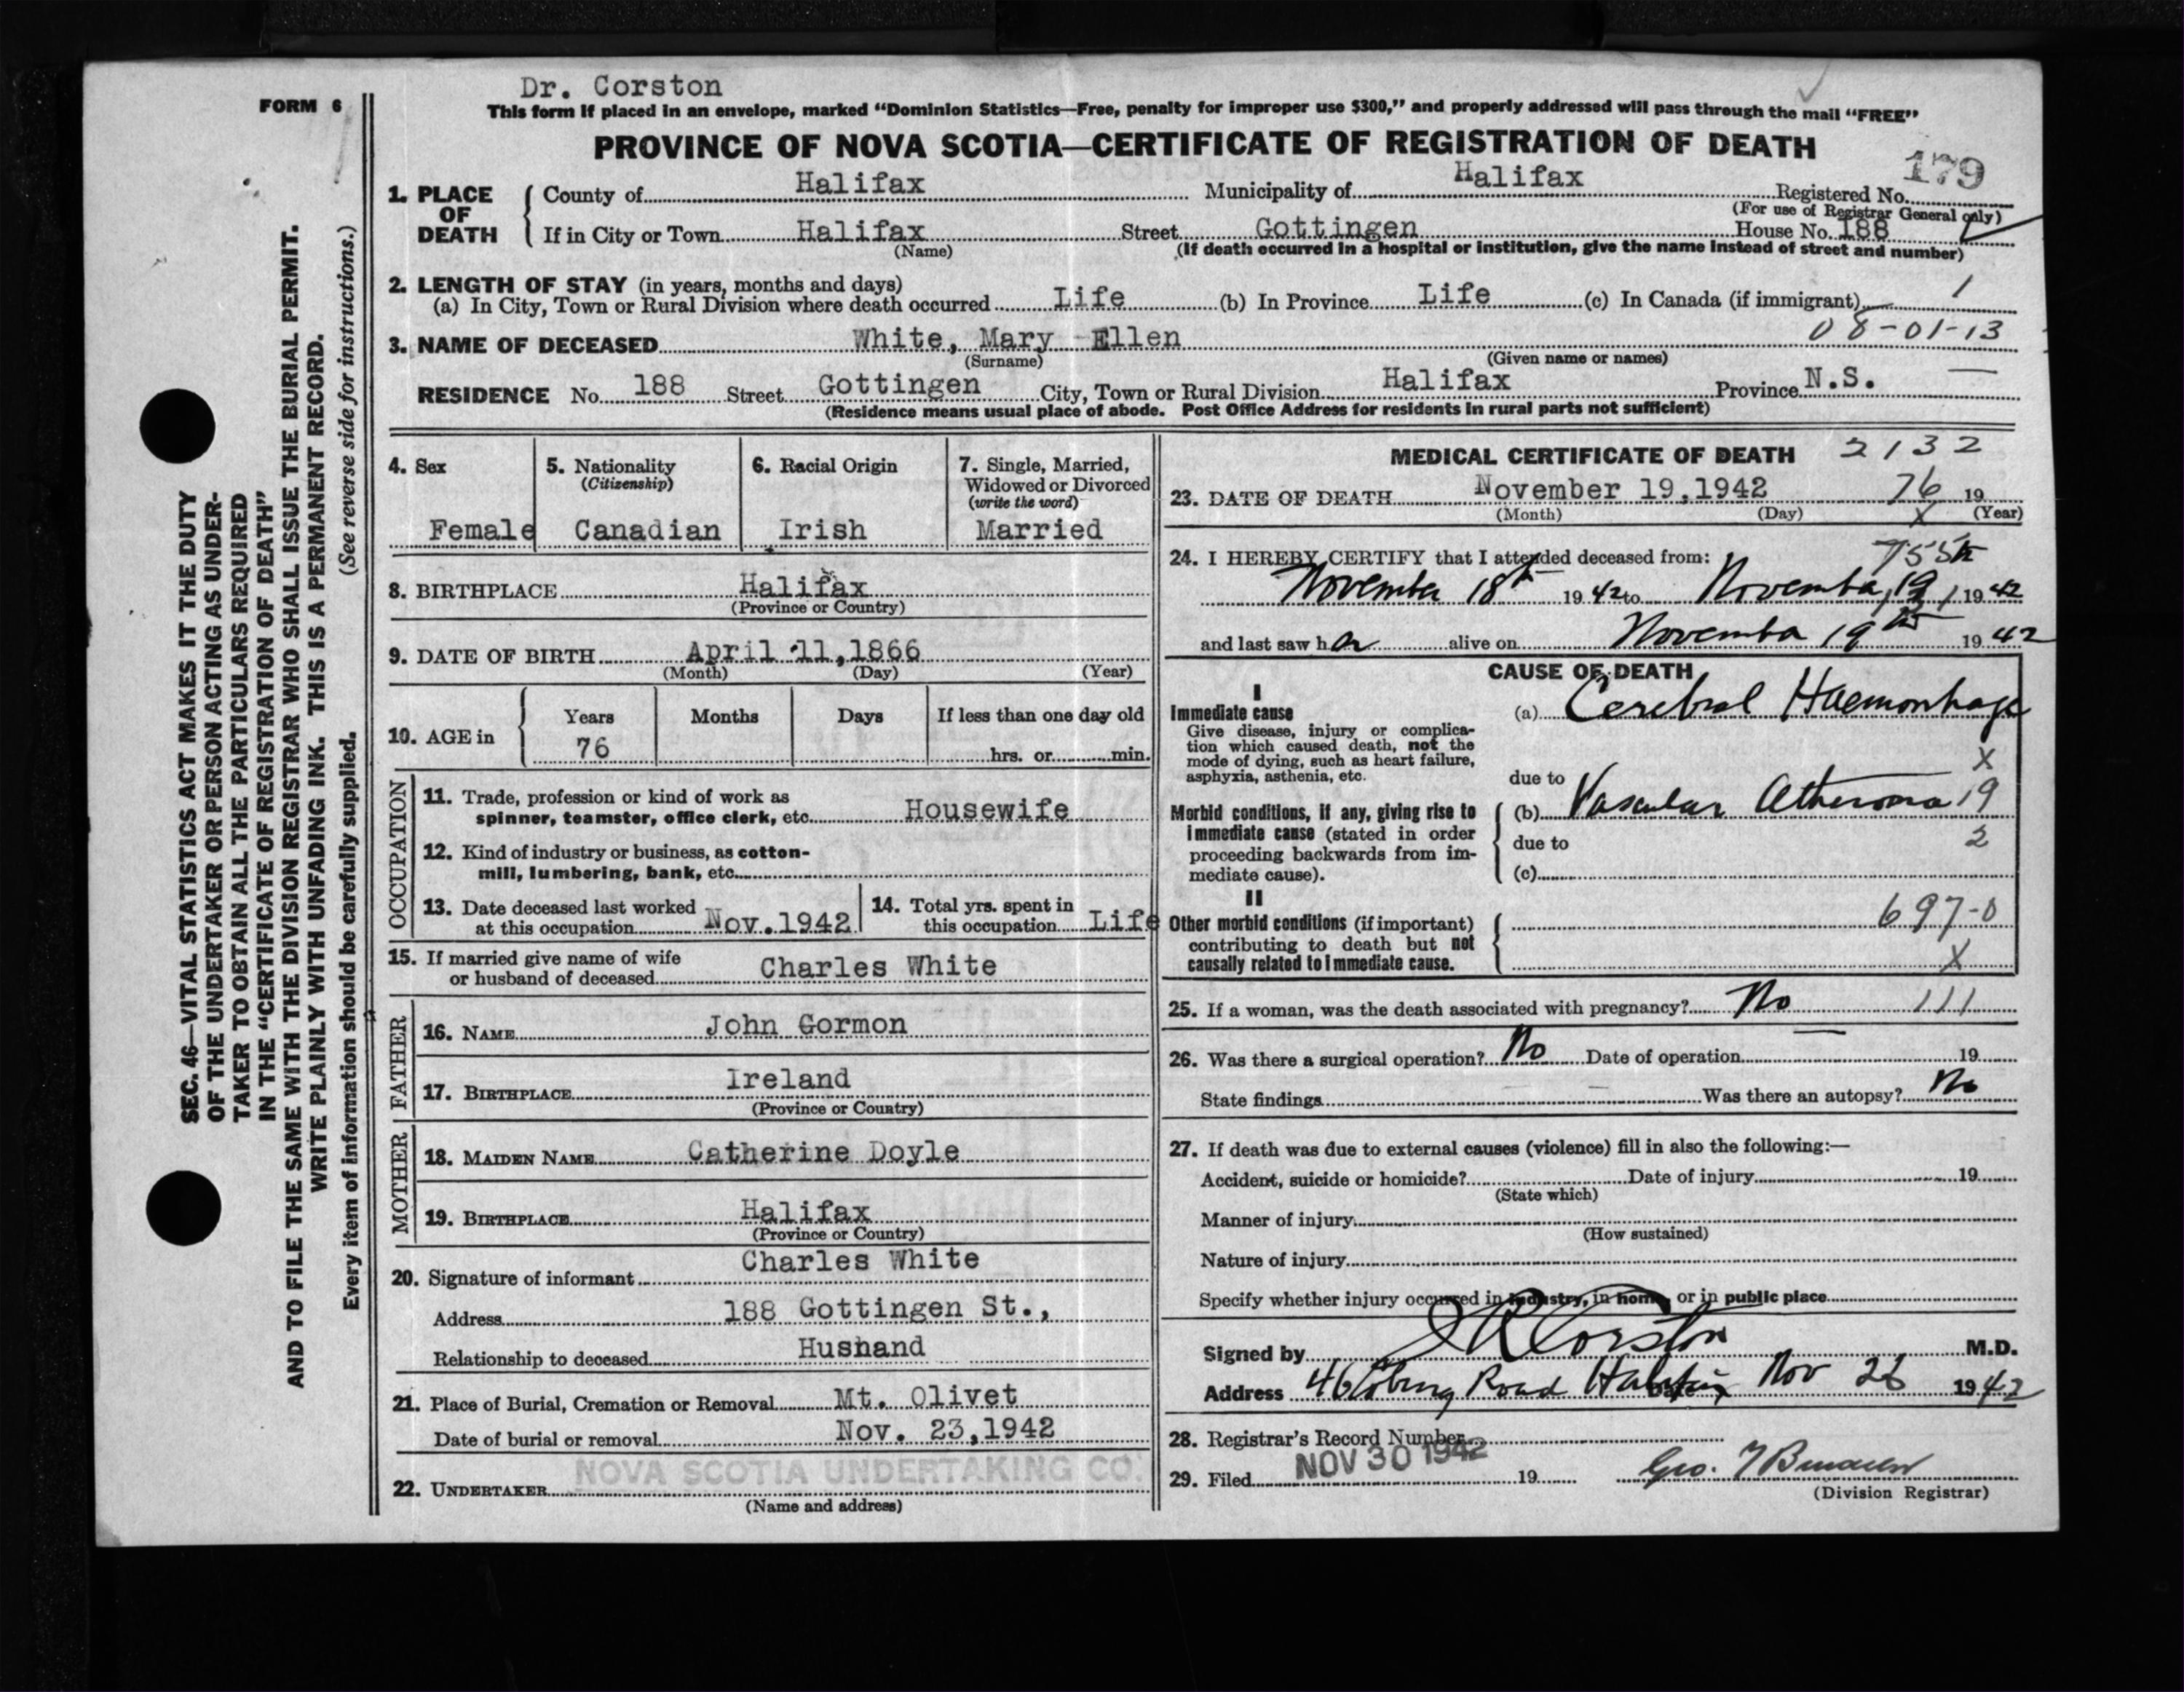 Dr. Corston
FORM 6
This form if placed in an envelope, marked “Dominion Statistics—Free, penalty for improper use $300,” and properly addressed will pass through the mail “FREE”
PROVINCE OF NOVA SCOTIA—CERTIFICATE OF REGISTRATION OF DEATH
179
1. PLACE OF DEATH { County of Halifax Municipality of Halifax Registered No.
(For use of Registrar General only)
If in City or Town Halifax Street Gottingen House No. 188
(Name) (If death occurred in a hospital or institution, give the name instead of street and number)
2. LENGTH OF STAY (in years, months and days)
(a) In City, Town or Rural Division where death occurred Life (b) In Province Life (c) In Canada (if immigrant) 1
08-01-13
3. NAME OF DECEASED White, Mary Ellen
(Surname) (Given name or names)
RESIDENCE No. 188 Street Gottingen City, Town or Rural Division Halifax Province N.S. —
(Residence means usual place of abode. Post Office Address for residents in rural parts not sufficient)
4. Sex
Female
5. Nationality
(Citizenship)
Canadian
6. Racial Origin
Irish
7. Single, Married,
Widowed or Divorced
(write the word)
Married
8. BIRTHPLACE Halifax
(Province or Country)
9. DATE OF BIRTH April 11,1866
(Month) (Day) (Year)
10. AGE in { Years Months Days If less than one day old
76 hrs. or min.
OCCUPATION
11. Trade, profession or kind of work as
spinner, teamster, office clerk, etc. Housewife
12. Kind of industry or business, as cotton-
mill, lumbering, bank, etc.
13. Date deceased last worked
at this occupation Nov.1942
14. Total yrs. spent in
this occupation Life
15. If married give name of wife
or husband of deceased Charles White
FATHER
16. NAME John Gormon
17. BIRTHPLACE Ireland
(Province or Country)
MOTHER
18. MAIDEN NAME Catherine Doyle
19. BIRTHPLACE Halifax
(Province or Country)
Charles White
20. Signature of informant
Address 188 Gottingen St.,
Relationship to deceased Husnand
21. Place of Burial, Cremation or Removal Mt. Olivet
Date of burial or removal Nov. 23,1942
NOVA SCOTIA UNDERTAKING CO.
22. UNDERTAKER
(Name and address)
MEDICAL CERTIFICATE OF DEATH 2132
23. DATE OF DEATH November 19,1942 76 19
(Month) (Day) X (Year)
24. I HEREBY CERTIFY that I attended deceased from:
November 18th 1942 to November 19, 1942
and last saw her alive on November 19th 1942
CAUSE OF DEATH
I
Immediate cause
Give disease, injury or complica-
tion which caused death, not the
mode of dying, such as heart failure,
asphyxia, asthenia, etc.
(a) Cerebral Haemorrhage
X
due to
Morbid conditions, if any, giving rise to
immediate cause (stated in order
proceeding backwards from im-
mediate cause).
(b) Vascular Atheroma 19
due to 2
(c)
II
Other morbid conditions (if important)
contributing to death but not
causally related to immediate cause.
697-0
X
25. If a woman, was the death associated with pregnancy? No 111
26. Was there a surgical operation? No Date of operation — 19
State findings — Was there an autopsy? No
27. If death was due to external causes (violence) fill in also the following:—
Accident, suicide or homicide? Date of injury 19
(State which)
Manner of injury
(How sustained)
Nature of injury
Specify whether injury occurred in industry, in home, or in public place
Signed by Corston M.D.
Address 46 Coburg Road Halifax Nov 26 1942
28. Registrar’s Record Number
29. Filed NOV 30 1942 19 Geo.
(Division Registrar)
SEC. 46—VITAL STATISTICS ACT MAKES IT THE DUTY
OF THE UNDERTAKER OR PERSON ACTING AS UNDER-
TAKER TO OBTAIN ALL THE PARTICULARS REQUIRED
IN THE “CERTIFICATE OF REGISTRATION OF DEATH”
AND TO FILE THE SAME WITH THE DIVISION REGISTRAR WHO SHALL ISSUE THE BURIAL PERMIT.
WRITE PLAINLY WITH UNFADING INK. THIS IS A PERMANENT RECORD.
Every item of information should be carefully supplied. (See reverse side for instructions.)